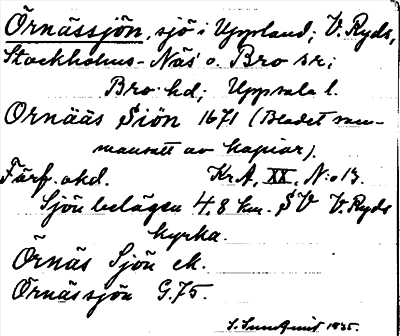 Örnässjön, sjö i Uppland; V. Ryds,
Stockholms-Näs o. Bro sr;
Bro hd; Uppsala l.
Ornääs Siön 1671 (Bladet sam-
mansatt av kopior).
Färf. okd. KrA, XX, N:o 13.
Sjön belägen 4,8 km. SV V. Ryds
kyrka.
Örnäs Sjön ek.
Örnässjön G.75.
S. Sundquist 1935.